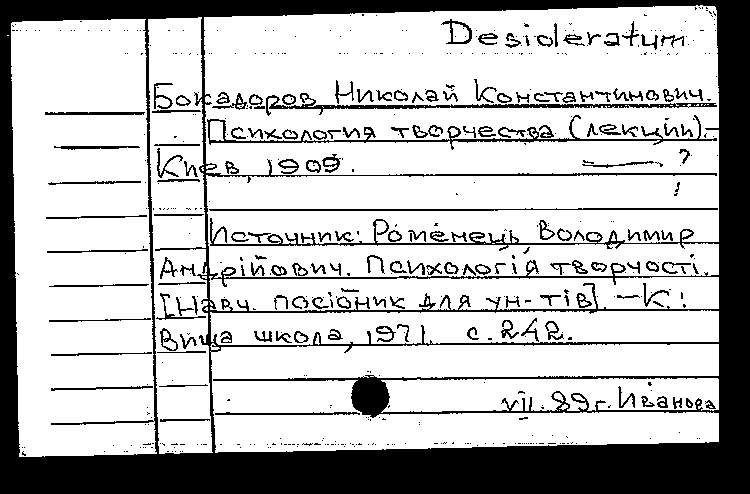 Desideratum
Бокадоров, Николай Константинович.
Психология творчества (лекции).-
Киев, 1909. — ?
!
Источник: Роменець, Володимир
Андрійович. Психологія творчості.
[Навч. посібник для ун-тів]. - К.:
Вища школа, 1971. с. 242.
VII. 89 г. Иванова